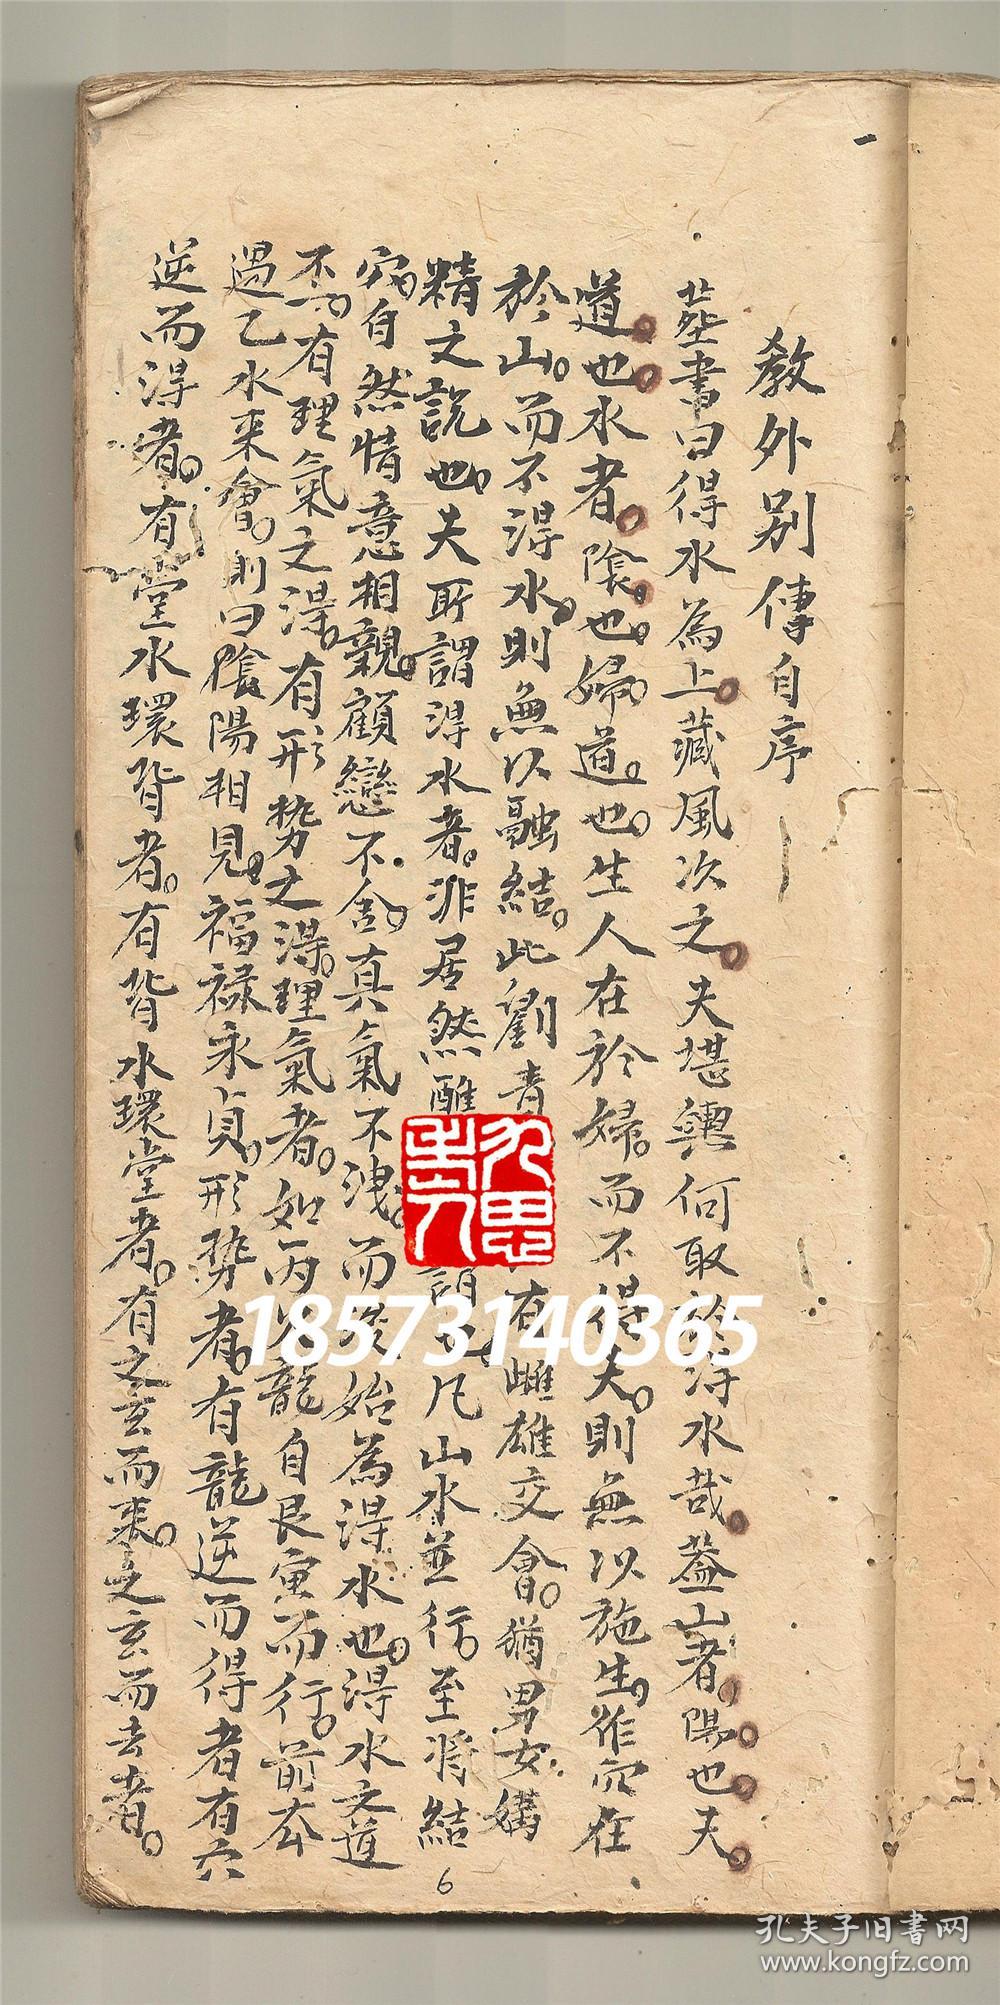 一
教外别傳自序
葬書曰得水為上。藏風次之。夫堪輿何取於得水哉。蓋山者。陽也。夫。
道。也。水者。陰。也。婦。道。也。生人在於婦。而不得夫。則無以施生。作穴在
於山。而不得水。則無以融結。此劉青在雌雄交會。猶男女媾
精之說也。夫所謂得水者。非居然離凡山水並行。至將結
穴。自然情意相親。顧戀不舍。真氣不洩。而後始為得水也。得水之道
不一。有理氣之得。有形势之得。理氣者。如丙以龍自艮寅而行。前去
過乙水來會。則曰陰陽相見。福禄永貞。形势者。有龍逆而得者有穴
逆而得者。有堂水環背者。有背水環堂者。有之玄而來。之玄而去者。
6
18573140365
孔夫子旧書网
www.kongfz.com